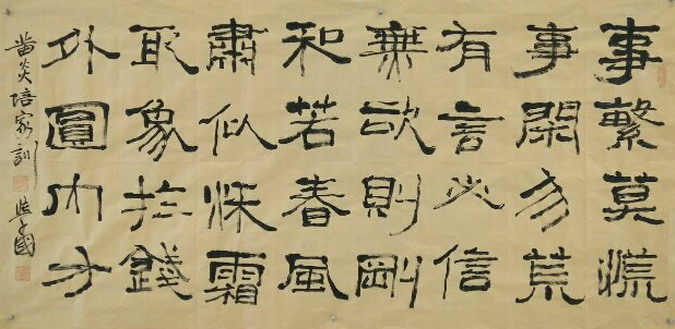 事繁莫慌
事閑勿荒
有言必信
無欲則剛
和若春風
肅似秋霜
取象於錢
外圓內方
黄炎培家訓